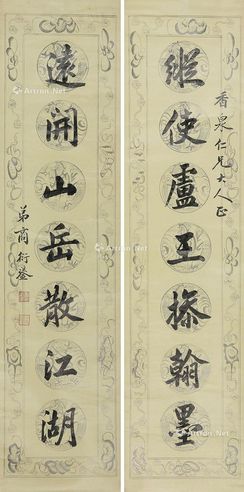 香泉仁兄大人正
縱使盧王操翰墨
遠開山岳散江湖
弟商衍鎏
Artron.Net
Artron.Net
Artron.Net
Artron.Net